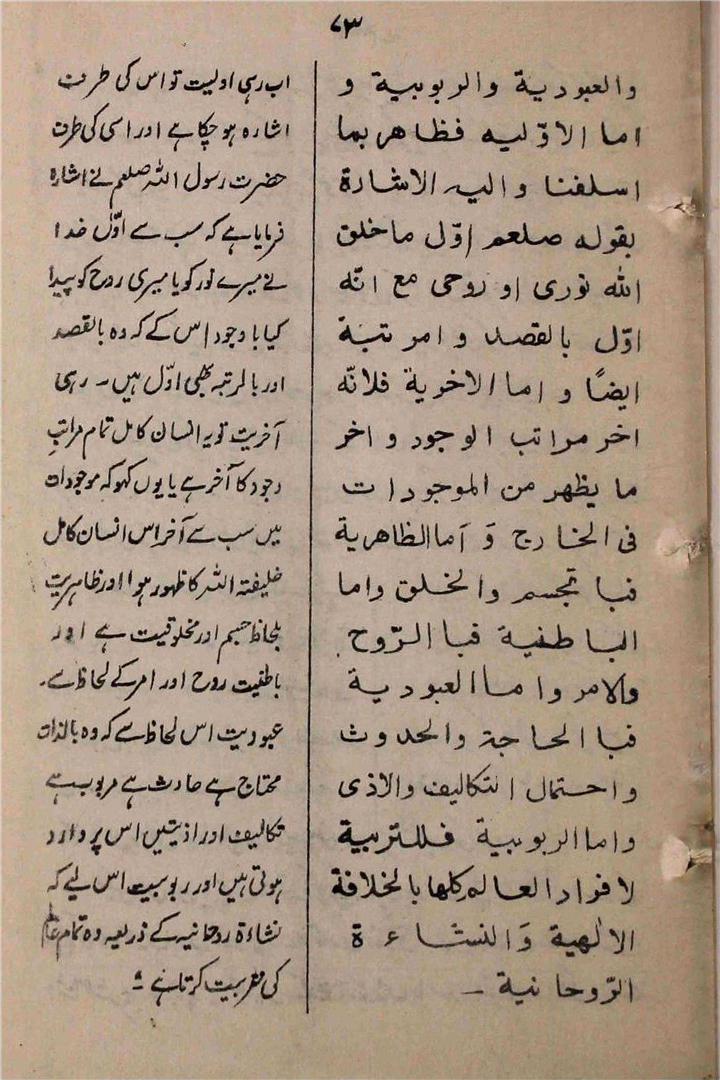 ۷۳
والعبودية والربوبية و
اما الاوّليه فظاهر بما
اسلفنا واليه الاشارة
بقوله صلعم اوّل ماخلق
الله نوری او روحی مع انّه
اوّل بالقصد وامرتبة
ايضًا و اما الاخروية فلانّه
اخر مراتب الوجود واخر
ما يظهر من الموجودات
فی الخارج وَ اَما الظاهرية
فبا تجسم والخلق واما
الباطنية فبا الرّوح
والامر واما العبودية
فبا الحاجة والحدوث
واحتمال التكاليف والاذی
واما الربوبية فللتربية
لافراد العالم كلها بالخلافة
الالٰهية وَالنشاءة
الرّوحانية ـ
اب رہی اولیت تو اس کی طرف
اشارہ ہوچکا ہے اور اسی کی طرف
حضرت رسول اللہ صلعم نے اشارہ
فرمایا ہے کہ سب سے اوّل خدا
نے میرے نور کو یا میری روح کو پیدا
کیا باوجود اس کے کہ وہ بالقصد
اور بالرتبہ بھی اوّل ہیں۔ رہی
آخریت تو یہ انسان کامل تمام مراتبِ
وجود کا آخر ہے یا یوں کہو کہ موجودات
میں سب سے آخر اس انسان کامل
خلیفتہ اللہ کا ظہور ہوا اور ظاہریت
بلحاظ جسم اور مخلوقیت ہے اور
باطنیت روح اور امر کے لحاظ سے۔
عبودیت اس لحاظ سے کہ وہ بالذات
محتاج ہے حادث ہے مربوب ہے
تکالیف اور اذیتیں اس پر وارد
ہوتی ہیں اور ربوبیت اس لیے کہ
نشاءۃ روحانیہ کے ذریعہ وہ تمام عالم
کی تربیت کرتا ہے۔